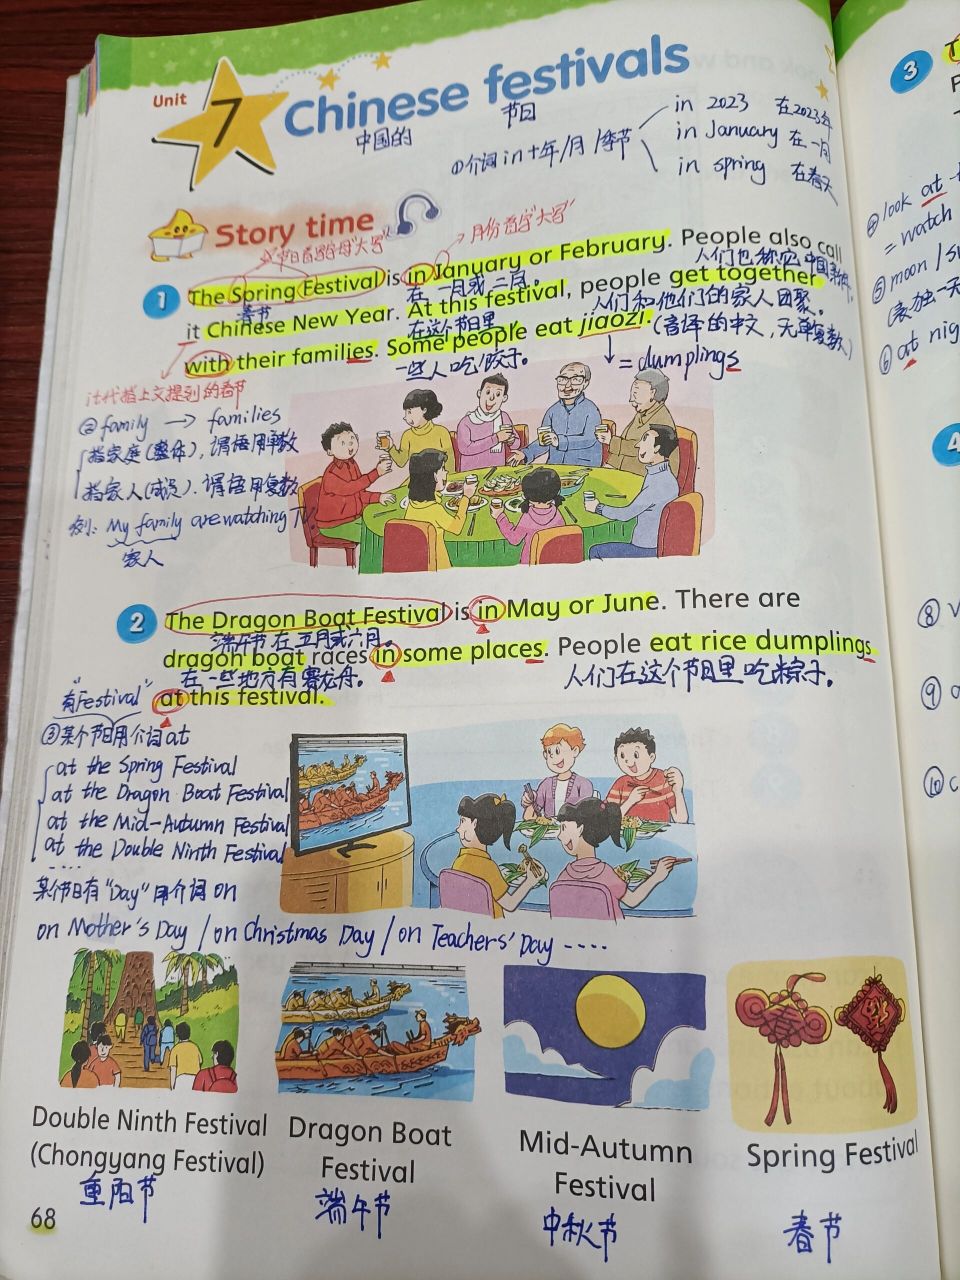 Unit 7 Chinese festivals
中国的 节日
①介词in+年/月/季节
in 2023 在2023年
in January 在一月
in spring 在春天
Story time
节日首字母"大写"
月份首字母"大写"
1 The Spring Festival is in January or February. People also call
春节 在一月或二月。 人们也称它中国新年。
it Chinese New Year. At this festival, people get together
在这个节日里, 人们和他们的家人团聚。
with their families. Some people eat jiaozi. (音译的中文,无单复数)
一些人吃饺子。 = dumplings
it代指上文提到的春节
②family → families
指家庭(整体),谓语用单数
指家人(成员),谓语用复数
例: My family are watching TV.
家人
2 The Dragon Boat Festival is in May or June. There are
端午节在五月或六月。
dragon boat races in some places. People eat rice dumplings
在一些地方有赛龙舟。 人们在这个节日里吃粽子。
at this festival.
"有Festival"
③某个节日用介词at
at the Spring Festival
at the Dragon Boat Festival
at the Mid-Autumn Festival
at the Double Ninth Festival
....
某个节日有"Day"用介词on
on Mother's Day / on Christmas Day / on Teachers' Day ....
Double Ninth Festival
(Chongyang Festival)
重阳节
Dragon Boat
Festival
端午节
Mid-Autumn
Festival
中秋节
Spring Festival
春节
68
3
④look at
= watch
⑤moon / su
⑥at nig
4
⑧
⑨
⑩